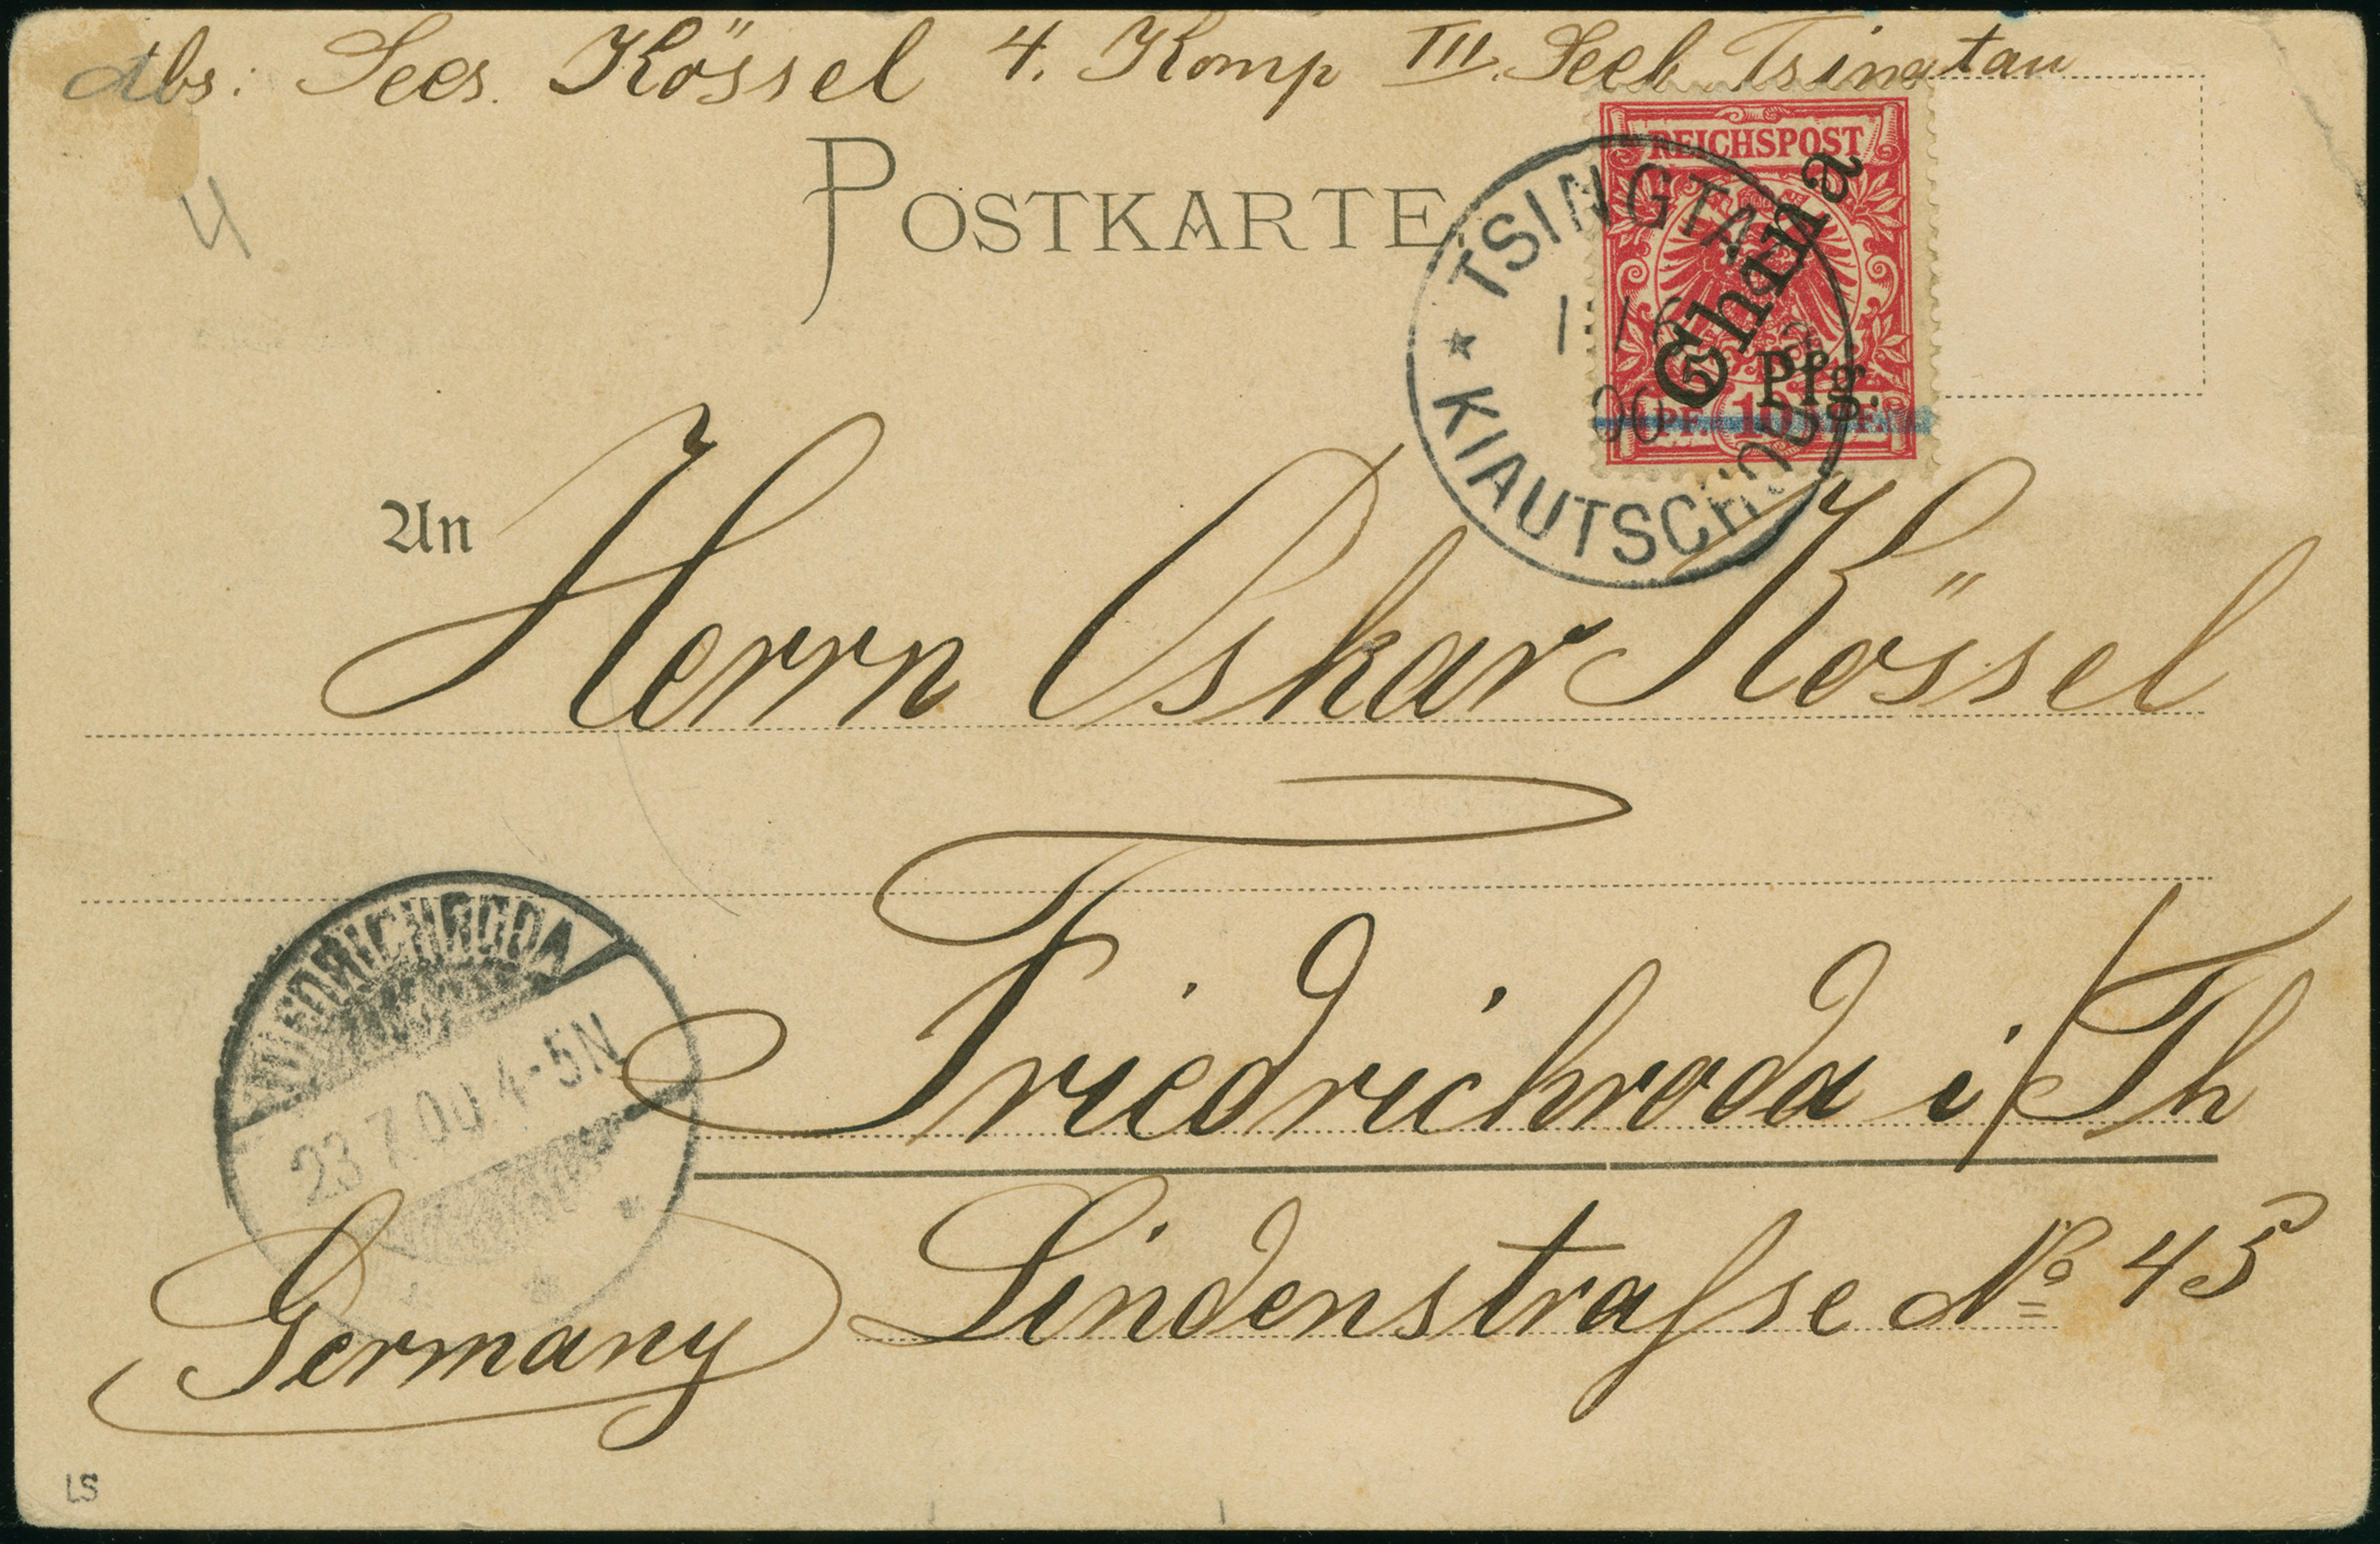 Abs: Sees. Kössel 4. Komp III. Seeb Tsingtau
POSTKARTE
REICHSPOST
China
Pfg.
PF. 10 PF.
TSINGTAU
KIAUTSCHOU
An
Herrn Oskar Kössel
Friedrichroda i/Th
FRIEDRICHRODA
23.7.00. 4-5N
Lindenstraſse No 45
Germany
LS
4